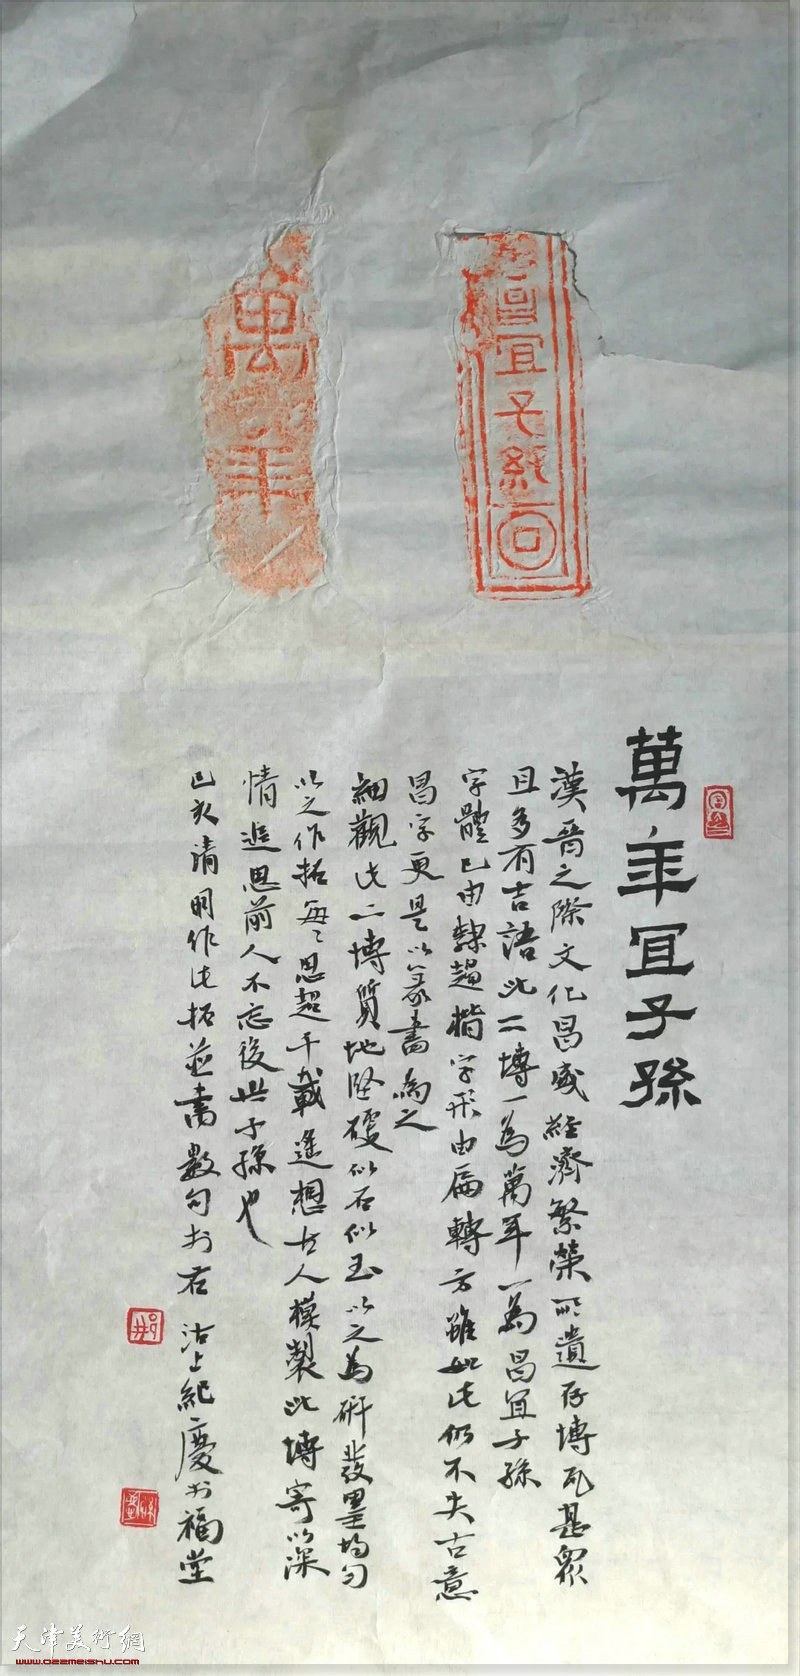 昌宜子孫
萬年
萬年宜子孫
漢晉之際文化昌盛經濟繁榮所遺存塼瓦甚眾
且多有吉語此二塼一為萬年一為昌宜子孫
字體已由隸趨楷字形由扁轉方雖如此仍不失古意
昌字更是以篆書為之
細觀此二塼質地堅硬似石似玉以之為硏發墨均勻
以之作拓每々思超千載遙想古人模製此塼寄以深
情追思前人不忘後世子孫也
己亥清明作此拓並書數句於右 沽上紀慶於福堂
天津美術網
www.022meishu.com